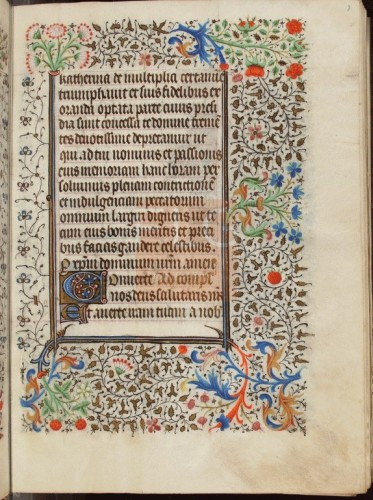 katherina de multiplici certamine
triumphavit et suis fidelibus ex
orandi optata parte cuius presi
dia sunt concessa te domine tremen
tes devotissime deprecamur ut
qui ad tui nominis et passionis
eius memoriam hanc horam per
solvimus plenam contricionem
et indulgenciam peccatorum
omnium largiri digneris ut te
cum eius bonis meritis et prec
bus facias gaudere celestibus.
Per xpm dominum nrm amen
Converte Ad compl'
nos deus salutaris nr
Et averte iram tuam a nob